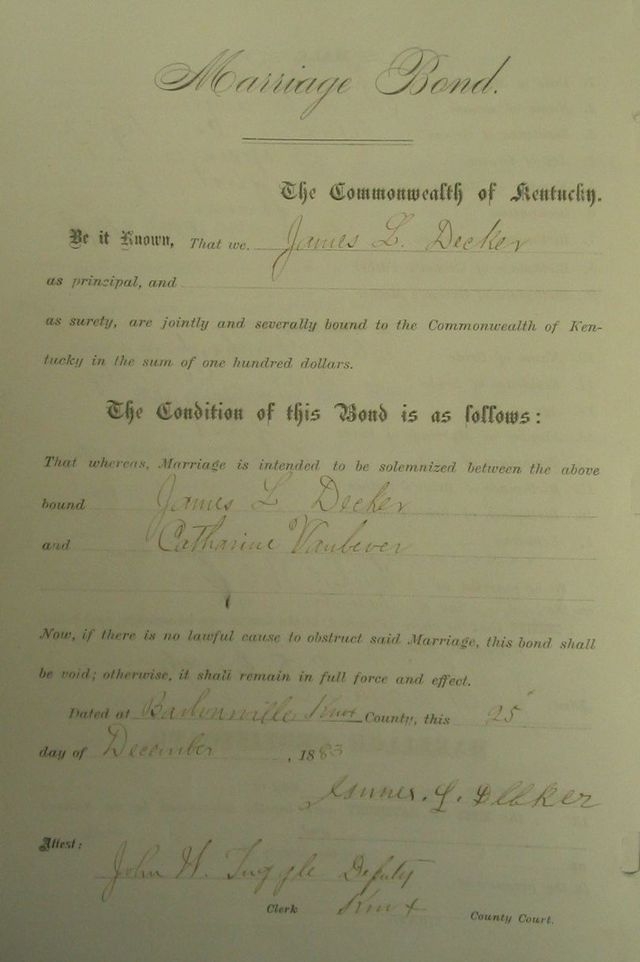 Marriage Bond.
The Commonwealth of Kentucky.
Be it Known, That we. James L. Decker
as principal, and
as surety, are jointly and severally bound to the Commonwealth of Ken-
tucky in the sum of one hundred dollars.
The Condition of this Bond is as follows:
That whereas, Marriage is intended to be solemnized between the above
bound James L Decker
and Catharine Vanbever
Now, if there is no lawful cause to obstruct said Marriage, this bond shall
be void; otherwise, it shall remain in full force and effect.
Dated at Barbourville Knox County, this 25
day of December, 1883
James. L. Decker
Attest:
John W. Tuggle Deputy
Clerk Knox County Court.